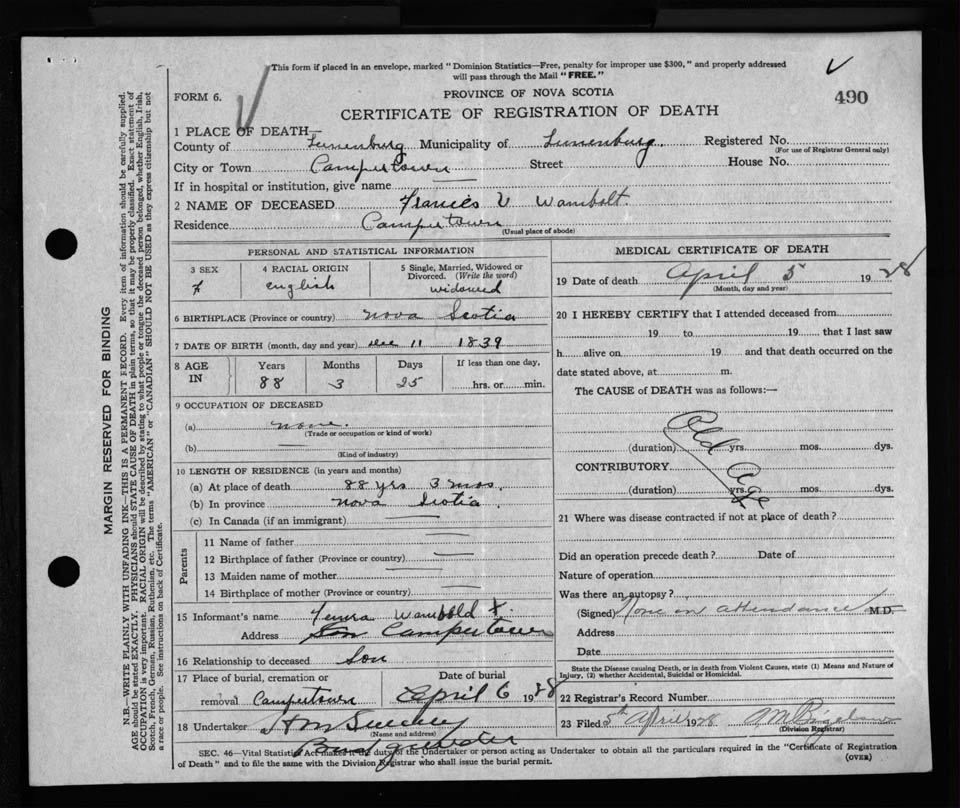 This form if placed in an envelope, marked "Dominion Statistics—Free, penalty for improper use $300," and properly addressed
will pass through the Mail "FREE."
FORM 6.
PROVINCE OF NOVA SCOTIA
490
CERTIFICATE OF REGISTRATION OF DEATH
1 PLACE OF DEATH—
County of Lunenburg Municipality of Lunenburg Registered No.
(For use of Registrar General only)
City or Town Campertown Street House No.
If in hospital or institution, give name
2 NAME OF DECEASED Francis V Wambolt.
Residence Campertown
(Usual place of abode)
PERSONAL AND STATISTICAL INFORMATION
3 SEX 4 RACIAL ORIGIN 5 Single, Married, Widowed or
Divorced. (Write the word)
F english widowed
6 BIRTHPLACE (Province or country) nova Scotia
7 DATE OF BIRTH (month, day and year) Dec 11 1839
8 AGE IN Years Months Days If less than one day,
88 3 25 hrs. or min.
9 OCCUPATION OF DECEASED
(a) none.
(Trade or occupation or kind of work)
(b)
(Kind of industry)
10 LENGTH OF RESIDENCE (in years and months)
(a) At place of death 88 yrs 3 mos.
(b) In province nova Scotia.
(c) In Canada (if an immigrant)
Parents
11 Name of father
12 Birthplace of father (Province or country)
13 Maiden name of mother
14 Birthplace of mother (Province or country)
15 Informant's name Wambold
Address Son Campertown
16 Relationship to deceased Son
17 Place of burial, cremation or Date of burial
removal Campertown April 6 1928
18 Undertaker
(Name and address)
MEDICAL CERTIFICATE OF DEATH
19 Date of death April 5 1928
(Month, day and year)
20 I HEREBY CERTIFY that I attended deceased from
19 to 19 that I last saw
h alive on 19 and that death occurred on the
date stated above, at m.
The CAUSE of DEATH was as follows:—
Old Age
(duration) yrs. mos. dys.
CONTRIBUTORY
(duration) yrs. mos. dys.
21 Where was disease contracted if not at place of death?
Did an operation precede death? Date of
Nature of operation
Was there an autopsy?
(Signed) None in attendance M.D.
Address
Date
State the Disease causing Death, or in death from Violent Causes, state (1) Means and Nature of
Injury, (2) whether Accidental, Suicidal or Homicidal.
22 Registrar's Record Number
23 Filed 5th April 1928 M Bigelow
(Division Registrar)
SEC. 46—Vital Statistics Act makes it the duty of the Undertaker or person acting as Undertaker to obtain all the particulars required in the "Certificate of Registration
of Death" and to file the same with the Division Registrar who shall issue the burial permit.
(OVER)
MARGIN RESERVED FOR BINDING
N.B.—WRITE PLAINLY WITH UNFADING INK—THIS IS A PERMANENT RECORD. Every item of information should be carefully supplied.
AGE should be stated EXACTLY. PHYSICIANS should STATE CAUSE OF DEATH in plain terms, so that it may be properly classified. Exact statement of
OCCUPATION is very important. RACIAL ORIGIN will be described by stating to what people or tongue the deceased person belonged, whether English, Irish,
Scotch, French, German, Russian, Ruthenian, etc. The terms "AMERICAN" or "CANADIAN" SHOULD NOT BE USED as they express citizenship but not
a race or people. See instructions on back of Certificate.